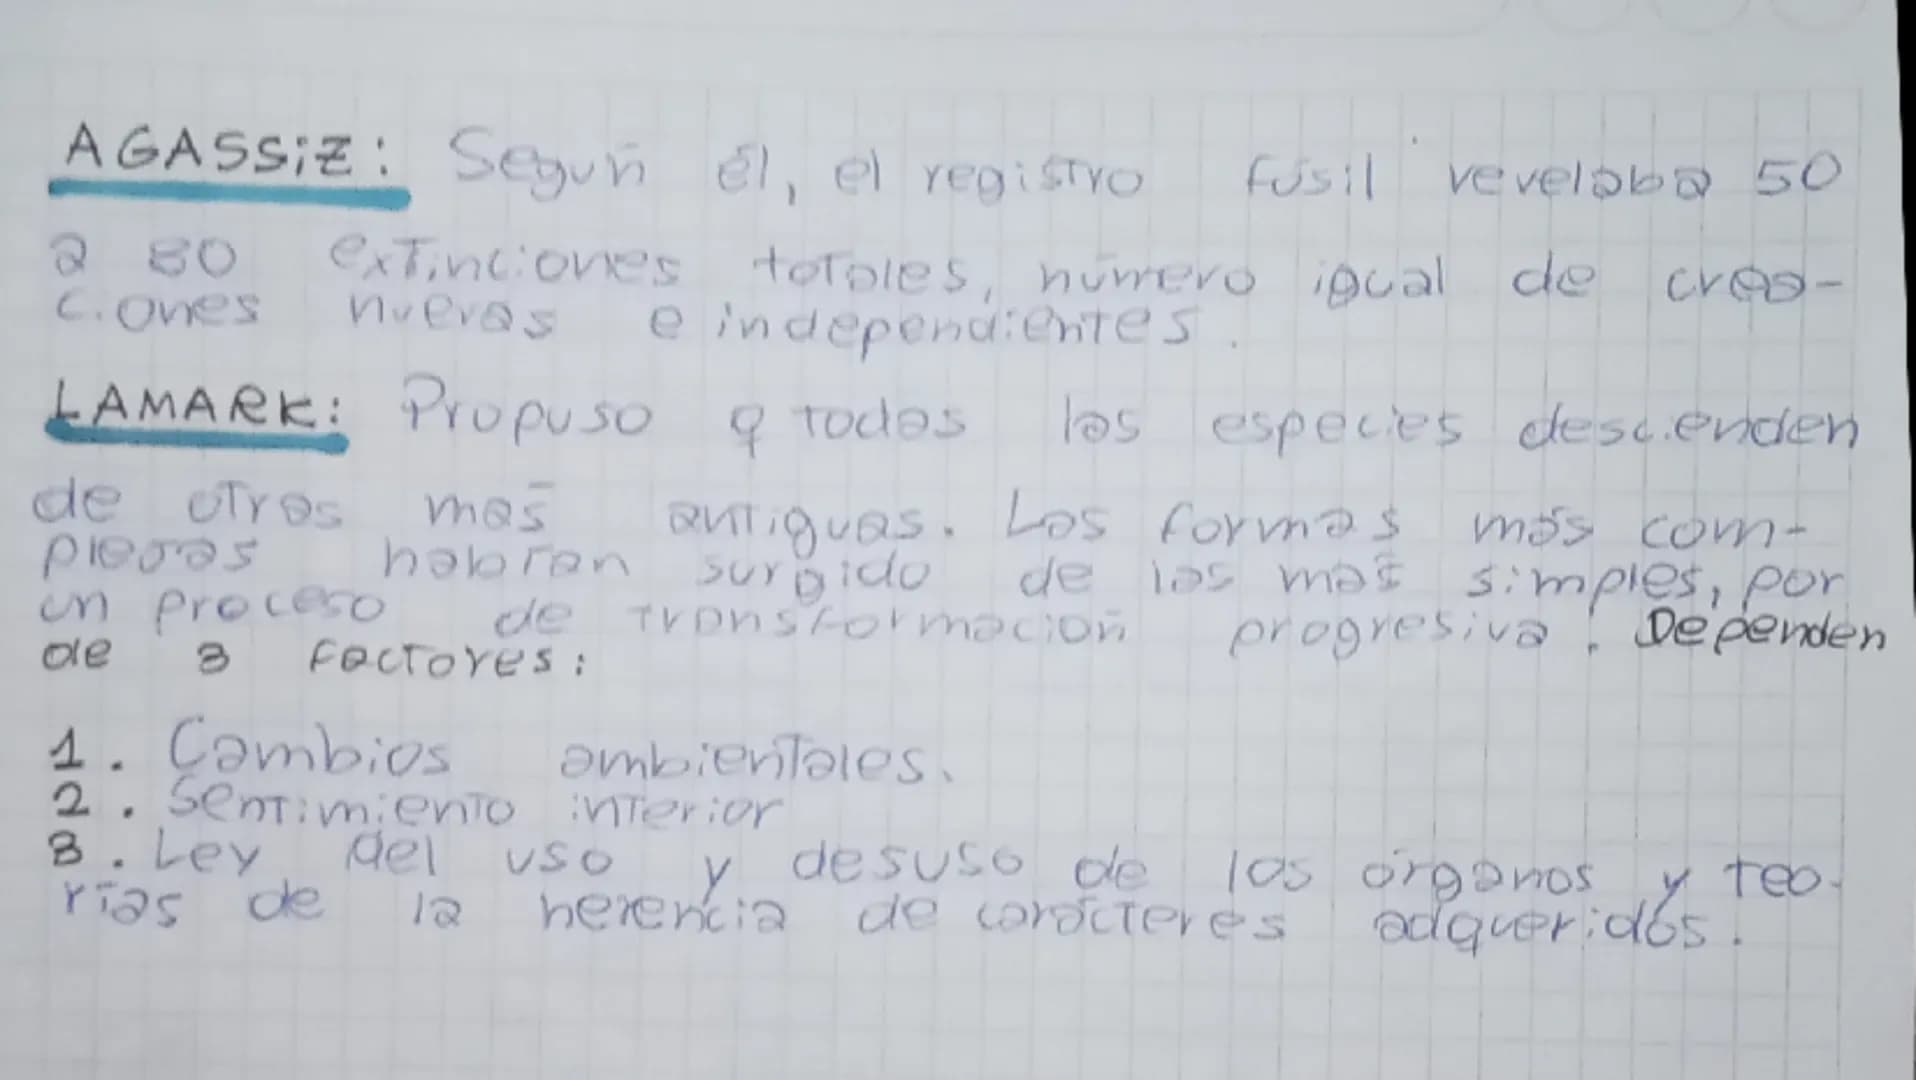 AGASSIZ: Según él, el registro fósil revelaba 50
a 80 extinciones totales, número igual de crea-
ciones nuevas e independientes.
LAMARK: Propuso q todas las especies descienden
de otras más antiguas. Las formas más com-
plejas habrían surgido de las más simples, por
un proceso de transformación progresiva. Dependen
de 3 factores:
1. Cambios ambientales.
2. Sentimiento interior
3. Ley del uso y desuso de los órganos y teo-
rías de la herencia de carácteres adqueridos.